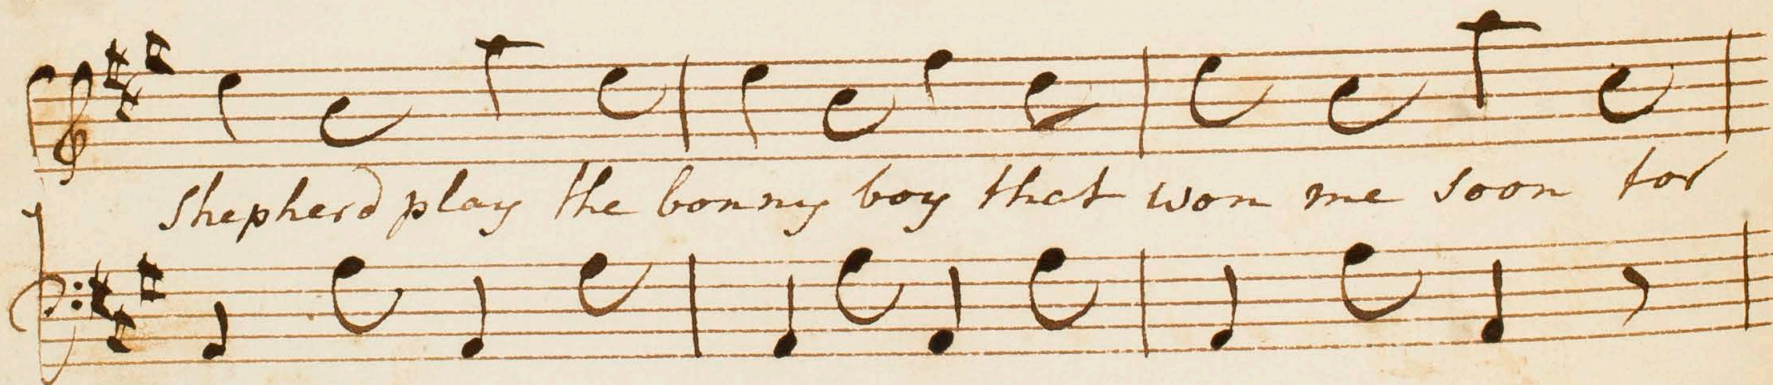 Shepherd play the bonny boy that won me soon for